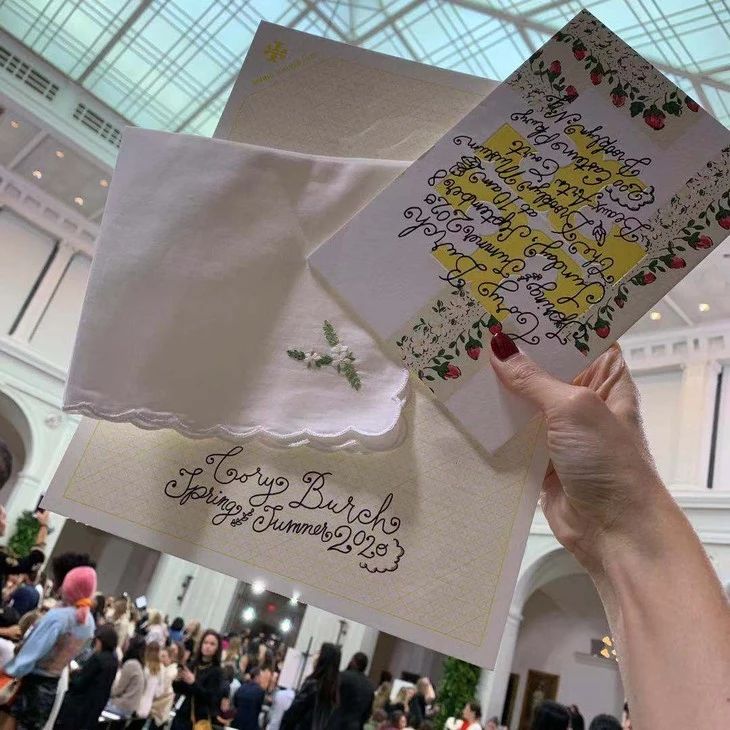 Tory Burch
Spring Summer 2020
Tory Burch
Spring Summer 2020
Sunday, September 8
at 10 am
Brooklyn Museum
Beaux-Arts Court
200 Eastern Pkwy
Brooklyn, NY